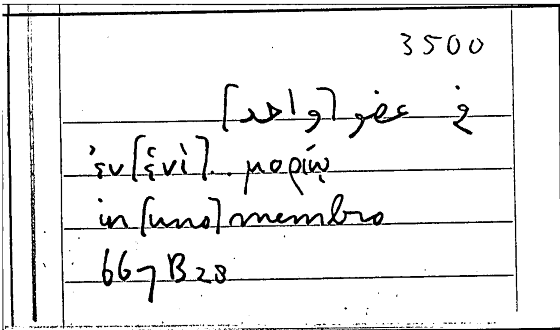 3500
في عضو [واحد]
ἐν [ἑνὶ]... μορίῳ
in [uno] membro
667 B 28